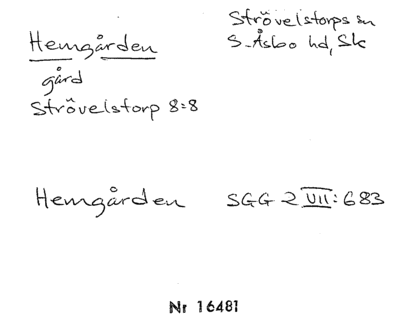 Hemgården
Strövelstorps sn
S. Åsbo hd, Sk
gård
Strövelstorp 8:8
Hemgården SGG 2 VII: 683
Nr 16481